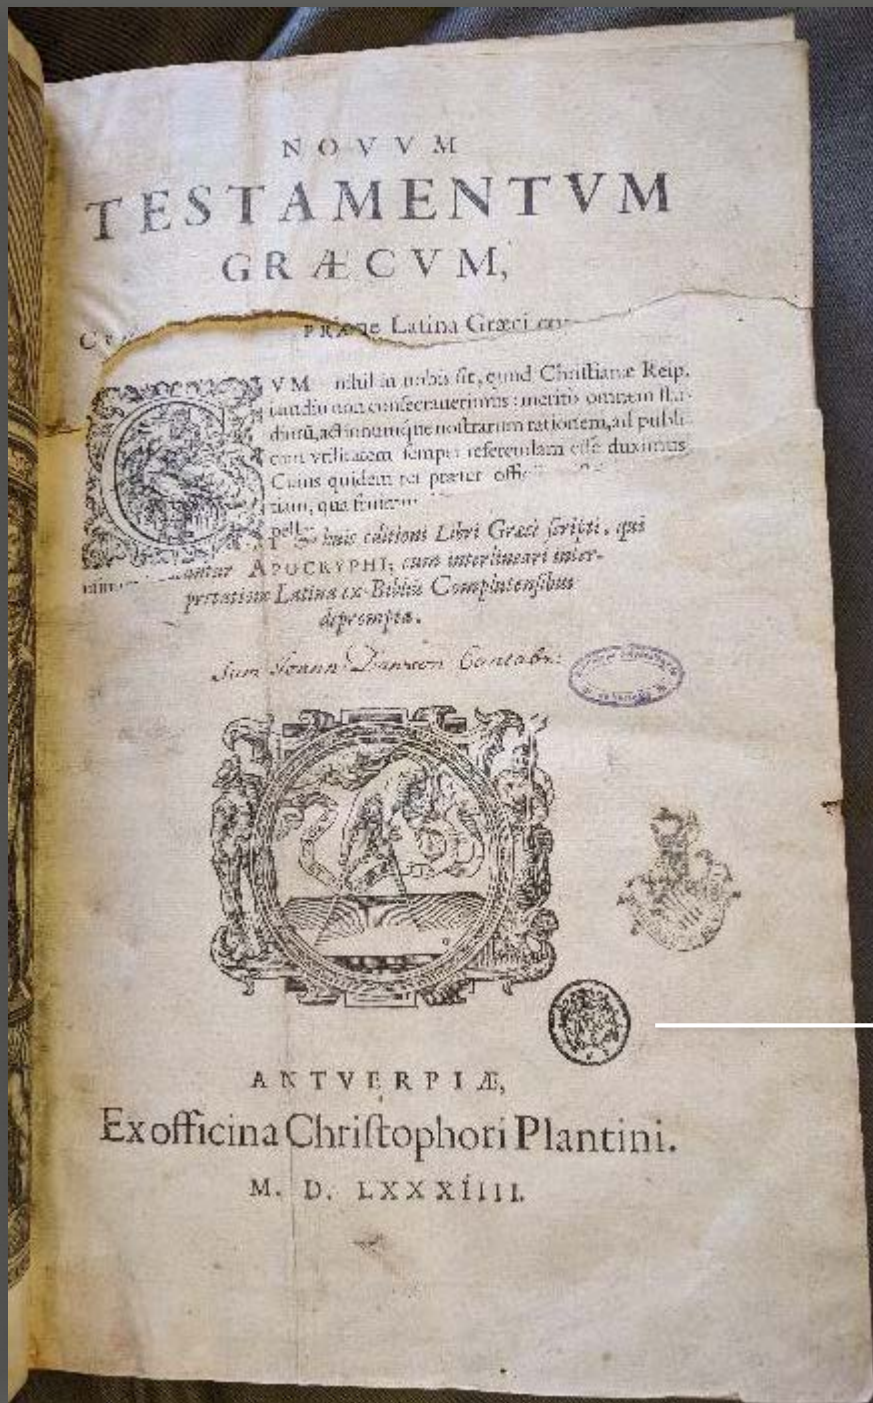 NOVVM
TESTAMENTVM
GRÆCVM,
PRÆ ne Latina Græci con
VM nihil in nobis sit, quod Christianæ Reip.
iamdiu non consecrauerimus: meritò omnem stu-
diũ, actionumque nostrarum rationem, ad publi-
cam vtilitatem semper referendam esse duximus
Cuius quidem rei præter offic
tiam, qua fruimur
huic editioni Libri Græcè scripti, qui
antur APOCRYPHI; cum interlineari inter-
pretatione Latina ex Bibliis Complutensibus
deprompta.
Sum Cantabr:
ANTVERPIÆ,
Ex officina Christophori Plantini.
M. D. LXXXIIII.